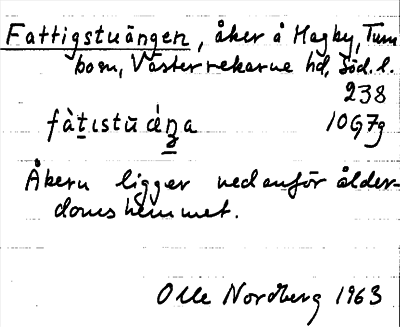 Fattigstuängen, åker å Hagby, Tum
bom, Västerrekarne hd, Söd. l.
238
fàt̲ɪstū áŋ̲a 10G7g
Åkern ligger nedanför ålder-
domshemmet.
Olle Nordberg 1963